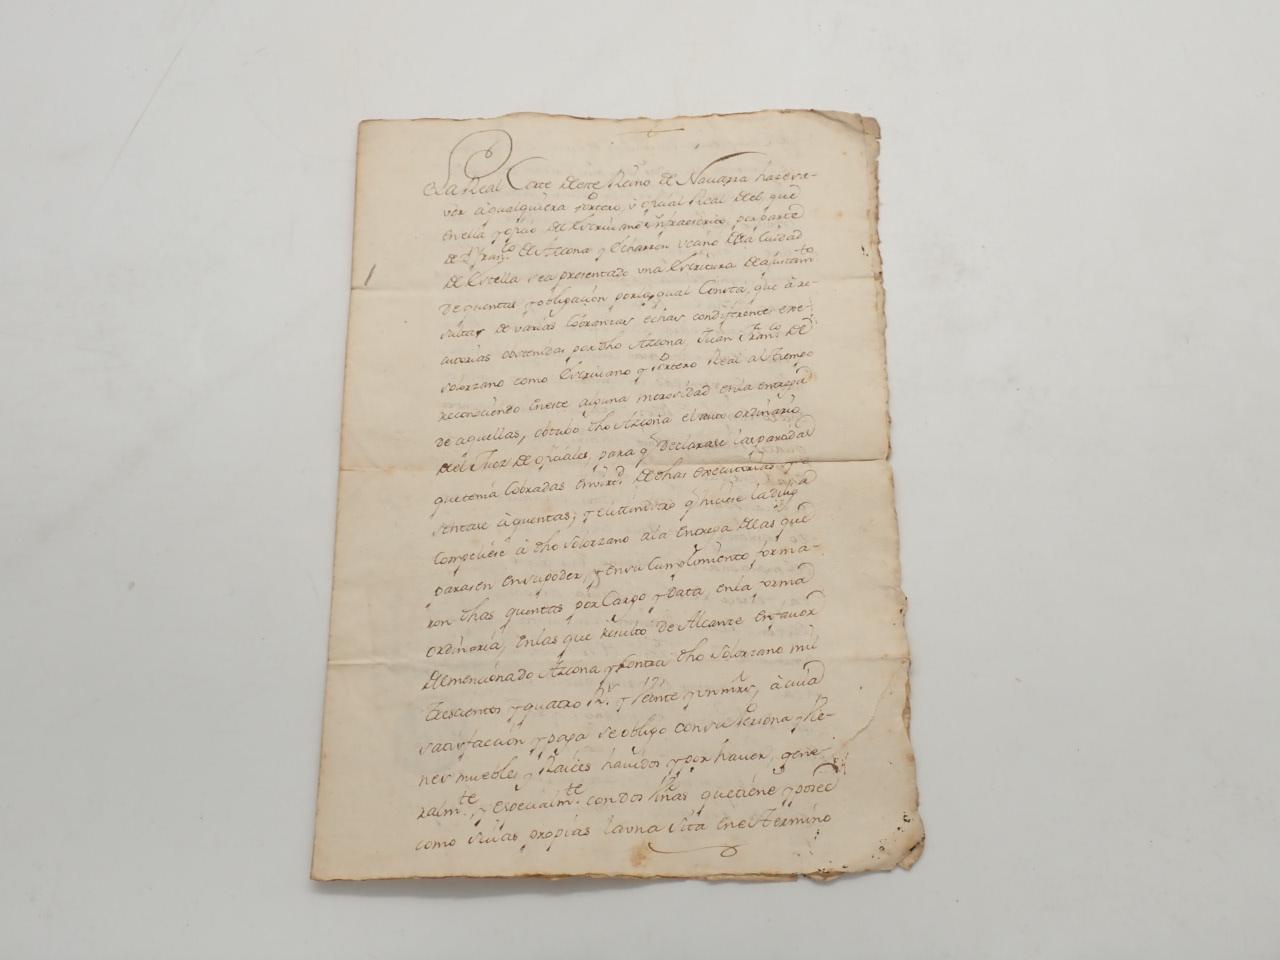 La Real Corte deste Reino de Navarra hace sa-
ver à qualquiera Portero, ù oficial Real del que
en ella y oficio del Escrivano infraescrito, por parte
de Dn Franco de Azcona y Echarren vecino de la Ciudad
de Estella sea presentado una Escritura de ajustamto
de quentas y obligacion por la qual Consta, que à re-
sultas de varias Cobranzas echas con diferentes exe-
cutorias obtenidas por dho Azcona, Juan Franco de
Solorzano como Escrivano y Portero Real al Tiempo
reconociendo en este alguna morosidad en la entrega
de aquellas, obtubo dho Azcona el auto ordinario
del Juez de oficiales, para q declarase las partidas
que tenia Cobradas en virtd de dhas executorias y se
sentase à quentas, y
Compeliese à dho Solorzano ala Entrega de las que
parasen en su poder, y en su Cumplimiento forma-
ron dhas quentas por Cargo y Data, en la forma
ordinaria, en las que Resultó de Alcance en favor
del mencionado Azcona y contra dho Solorzano mil
trescientos y quatro Rs y Veinte y un mrs, à cuia
satisfacción y paga se obligo con su Persona y Bie-
nes muebles y Raices havidos y por haver, gene-
ralmte, y especialmte con dos Viñas que tiene y posee
como suias propias la una Sita en el Termino